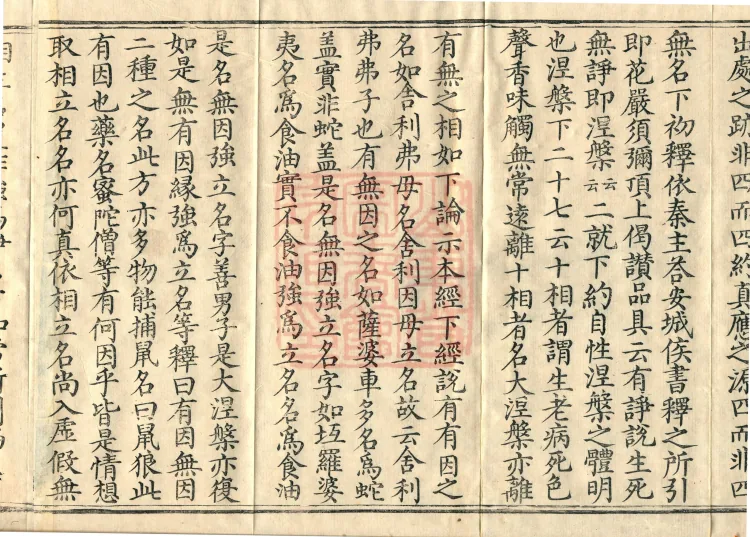 出處之跡非四而四約真應之源四而非四
無名下初釋依秦主荅安城侯書釋之所引
即花嚴須彌頂上偈讃品具云有諍說生死
無諍即涅槃云云二就下約自性涅槃之體明
也涅槃下二十七云十相者謂生老病死色
聲香味觸無常遠離十相者名大涅槃亦離
有無之相如下論示本經下經說有有因之
名如舍利弗母名舍利因母立名故云舍利
弗弗子也有無因之名如薩婆車多名為蛇
盖實非蛇盖是名無因強立名字如坘羅婆
夷名為食油實不食油強為立名名為食油
是名無因強立名字善男子是大涅槃亦復
如是無有因緣強為立名等釋曰有因無因
二種之名此方亦多物能捕鼠名曰鼠狼此
有因也藥名蜜陀僧等有何因乎皆是情想
取相立名名亦何真依相立名尚入虛假無